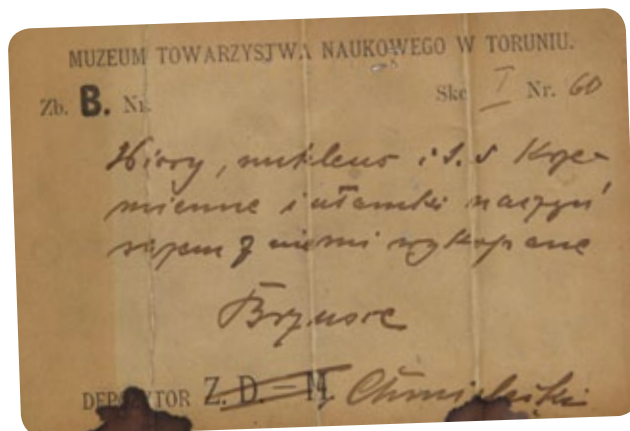 MUZEUM TOWARZYSTWA NAUKOWEGO W TORUNIU.
Zb. B. Nr. Skc I Nr. 60
Wiory, nukleus i t. d krze-
mienne i ułamki naczyń
razem z niemi wykopane
Brzusce
DEPOZYTOR Z. D. – M. Chmielecki